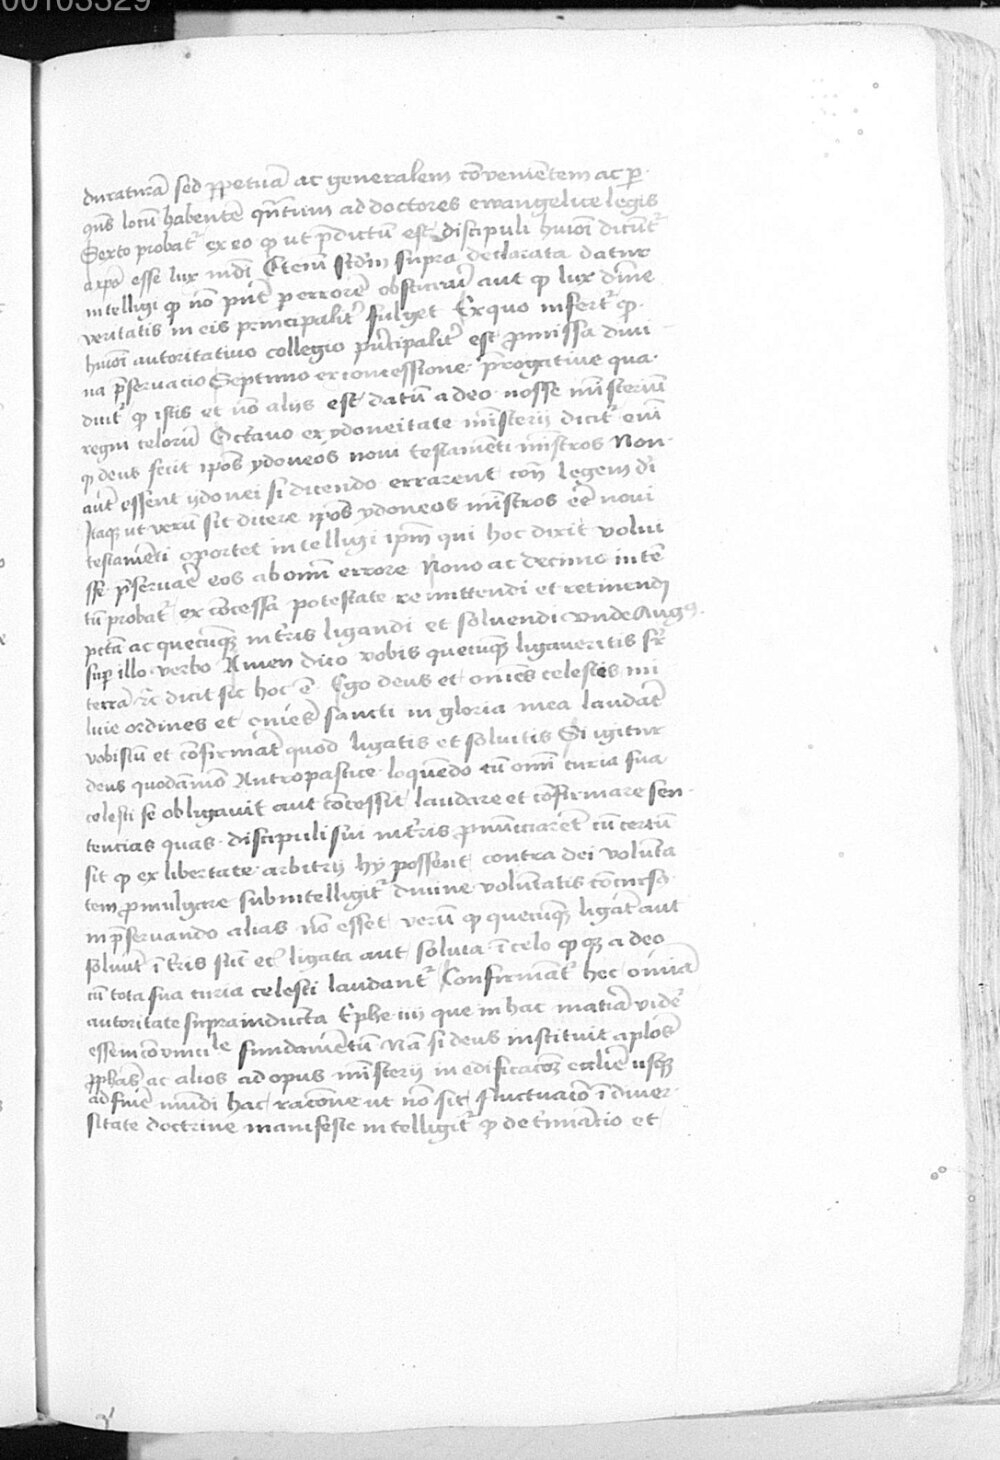 00103329
duraturā sed ꝑpetuā ac generalem cōveniētem ac ꝑ-
qn̄s locū habentē qn̄tum ad doctores ewangelice legis
Sexto probat᷑ ex eo qͥ ut p̄dictū est discipuli huiōi dicūt᷑
a xpo esse lux mdi Etenī scd̄m supra declarata datur
intelligi ꝙ nō pn̄t ꝑ errorē obscurari aut ꝙ lux divīe
veritatis in eis principalit᷑ fulget Ex quo infert᷑ ꝙ
huiōi autoritativo collegio principalit᷑ est ꝓmissa divi-
na p̄servacio Septimo ex concessione p̄rogative qua
dicit᷑ ꝙ istis et nō alijs est datū a deo nosse misteriū
regni celorū Octavo ex ydoneitate mīsterij dicit᷑ enī
ꝙ deus fecit ip̄os ydoneos novi testamēti mīstros Non
aūt essent ydonei si dicendo errarent cōn̄ legem dī
Itaqꝫ ut verū sit dicere ip̄os ydoneos mīstros eē novi
testamēti oportet intelligi ip̄m qui hoc dixit volui
sse p̄servare eos ab omī errore Nono ac decimo intē
tū probat᷑ ex cōcessa potestate remittendi et retinendi
pctā ac quecūqꝫ in tr̄is ligandi et solvendi unde Augꝰ.
sup illo verbo Amen dico vobis quecūqꝫ ligaveritis sr̄
terrā ⁊c̄ dicit sic hoc ē Ego deus et om̄es celestis mi
licie ordines et om̄es sancti in gloria mea laudāt
vobiscū et cōfirmāt quod ligatis et solvitis Si igitur
deus quodāmō Antropastice loquēdo cū omī curia sua
celesti se obligavit aut cōcessit laudare et cōfirmare sen-
tencias quas discipuli sui in tr̄is ꝓnūciarēt cū certū
sit ꝙ ex libertate arbitrij hij possent contra dei volūta
tem ꝓmulgare subintelligit᷑ divine volūtatis cōcurso
in p̄servando alias nō esset verū ꝙ quecūqꝫ ligāt aut
solvūt ī tr̄is sūt et ligata aut soluta ī celo ꝙ qꝫ a deo
cū tota sua curia celesti laudant᷑ Confirmāt᷑ hec om̄ia
autoritate supra inducta Ephe iiij que in hac matīa vidēt᷑
esse incōvincile fundamētū Nā si deus instituit ap̄los
ꝓphās ac alios ad opus mīsterij in edificacōꝫ eccliē usqꝫ
ad finē mūdi hac racōne ut nō sit fluctuacō ī diver-
sitate doctrine manifeste intelligit᷑ ꝙ det̄minacio et